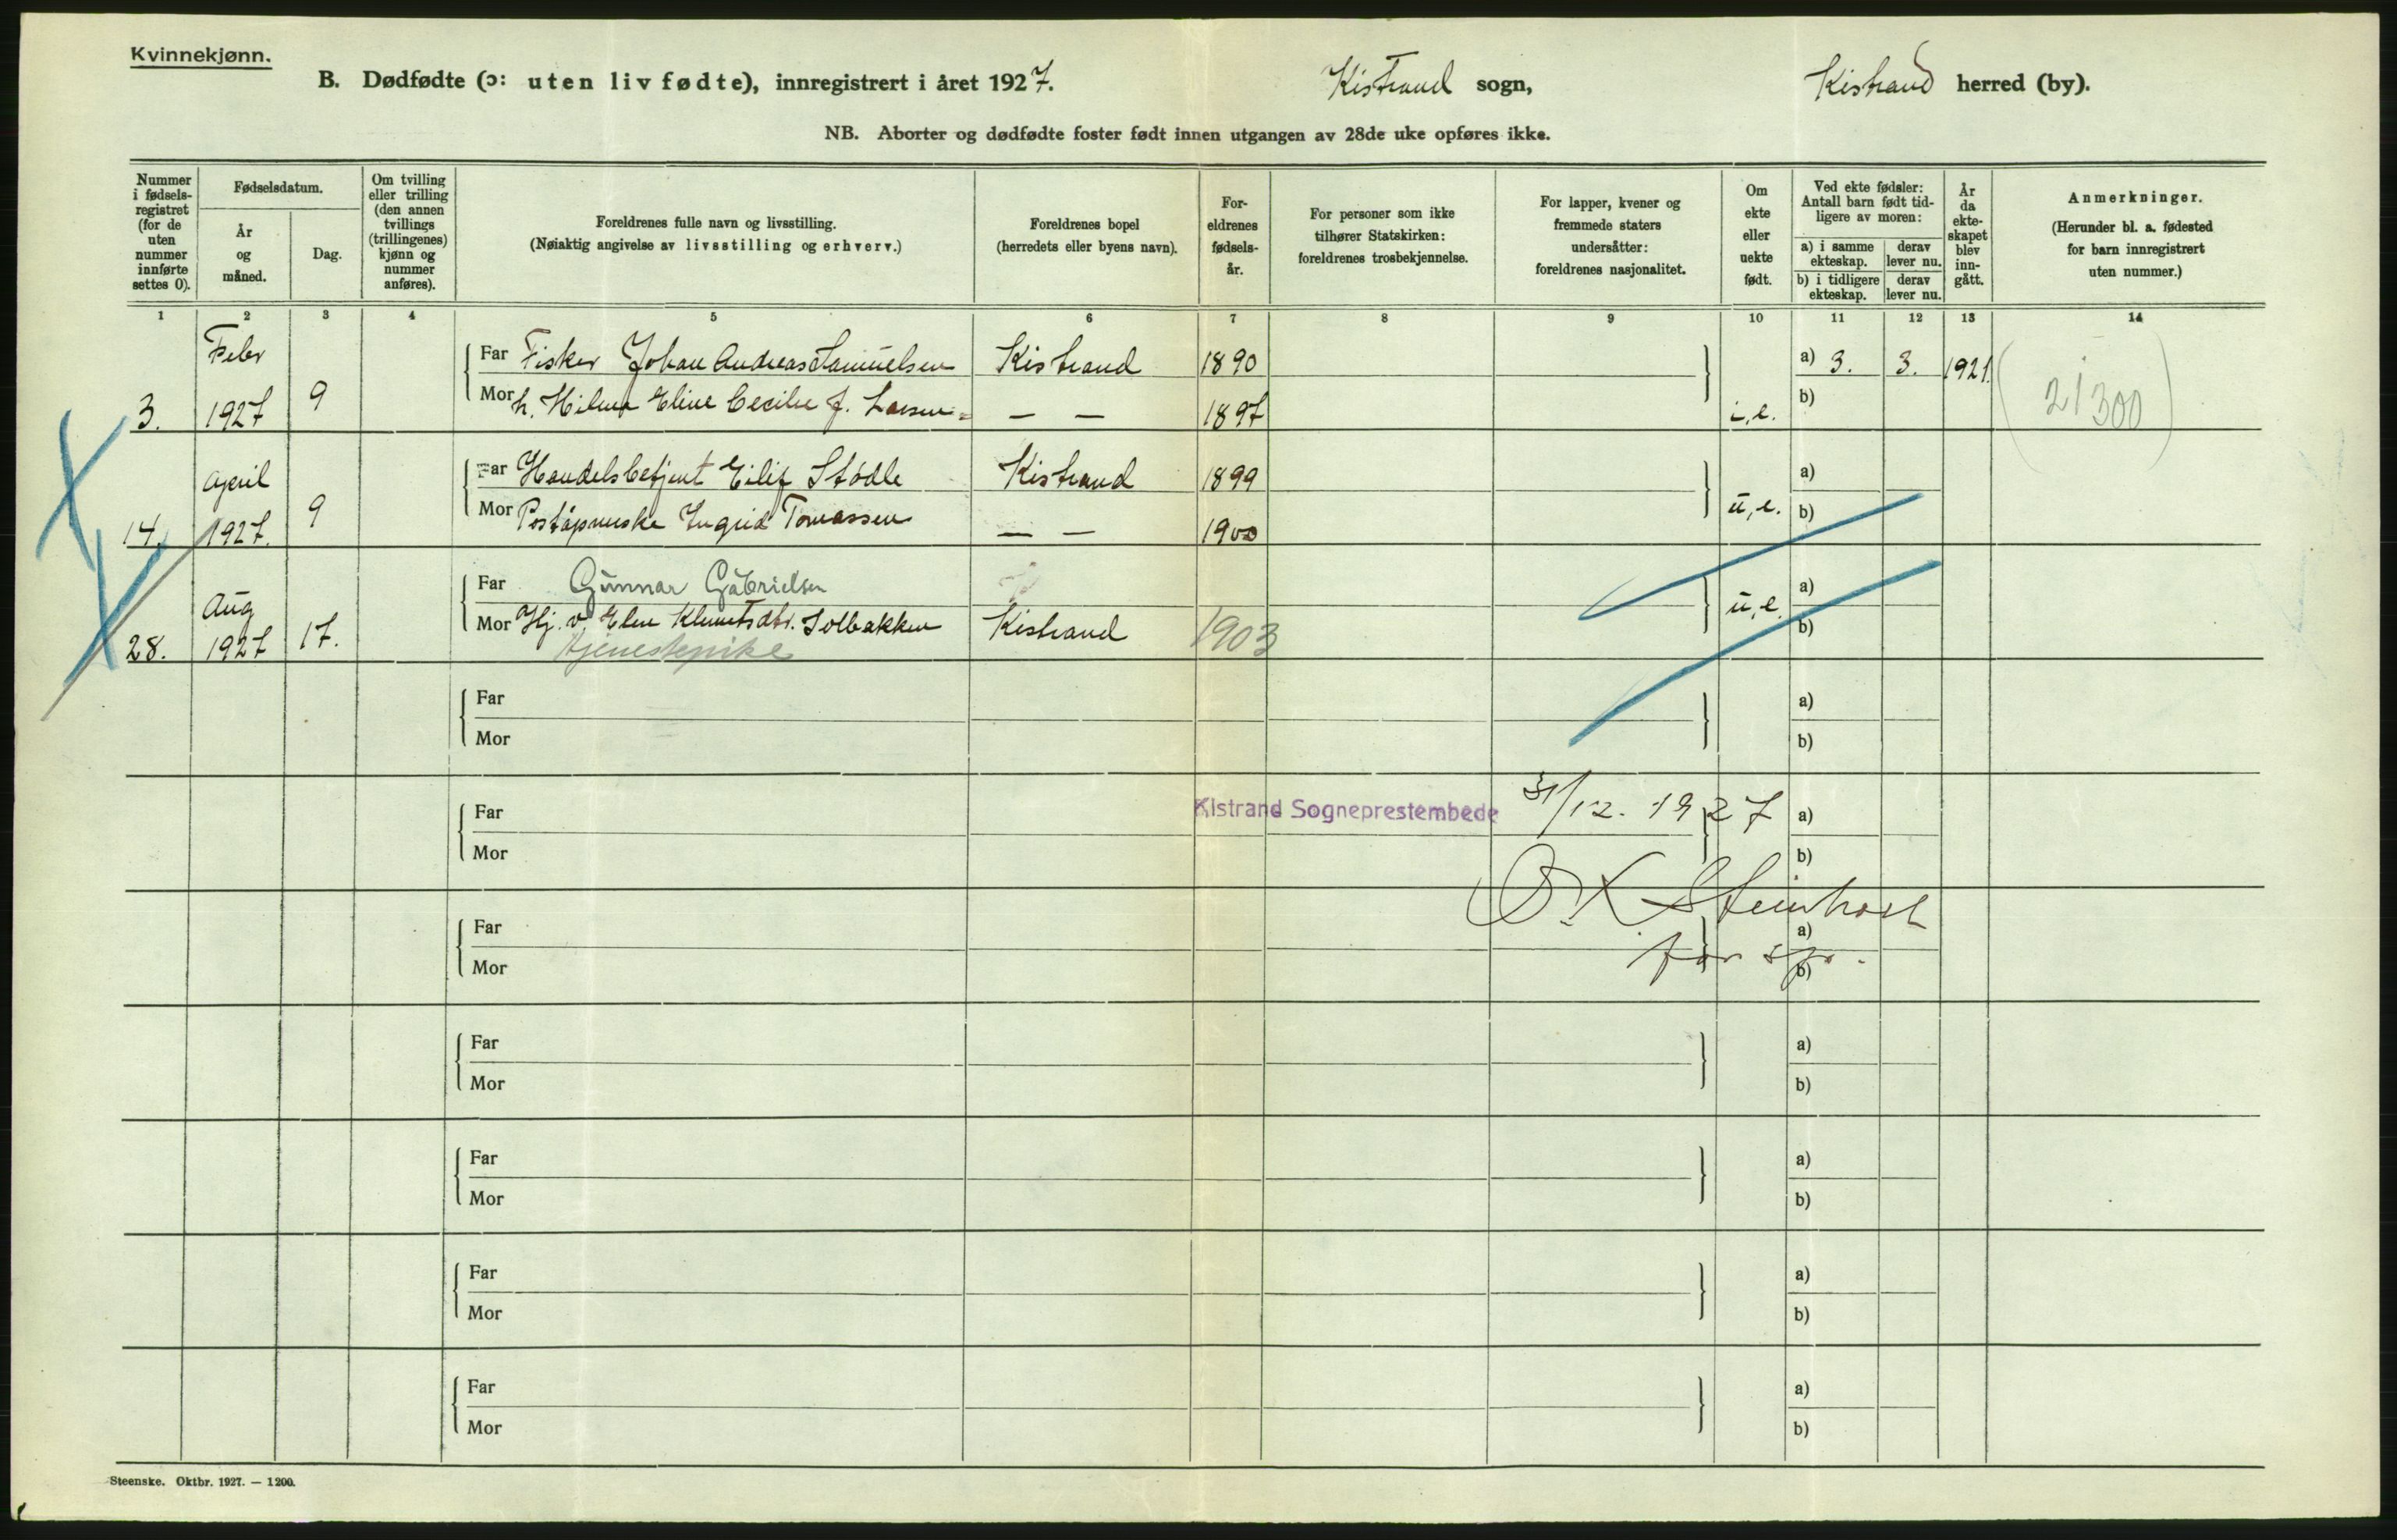 Kvinnekjønn.
B. Dødfødte (ɔ: uten liv fødte), innregistrert i året 1927. Kistrand sogn, Kistrand herred (by).
NB. Aborter og dødfødte foster født innen utgangen av 28de uke opføres ikke.
Nummer i fødsels-registret (for de uten nummer innførte settes 0).
Fødselsdatum.
År og måned.
Dag.
Om tvilling eller trilling (den annen tvillings (trillingenes) kjønn og nummer anføres).
Foreldrenes fulle navn og livsstilling.
(Nøiaktig angivelse av livsstilling og erhverv.)
Foreldrenes bopel
(herredets eller byens navn).
For-eldrenes fødsels-år.
For personer som ikke tilhører Statskirken: foreldrenes trosbekjennelse.
For lapper, kvener og fremmede staters undersåtter: foreldrenes nasjonalitet.
Om ekte eller uekte født.
Ved ekte fødsler: Antall barn født tid-ligere av moren:
a) i samme ekteskap.
derav lever nu.
b) i tidligere ekteskap.
derav lever nu.
År da ekte-skapet blev inn-gått.
Anmerkninger.
(Herunder bl. a. fødested for barn innregistrert uten nummer.)
1 2 3 4 5 6 7 8 9 10 11 12 13 14
Febr Far Fisker Johan Andreas Samuelsen Kistrand 1890 a) 3. 3. 1921.
3. 1927 9 Mor h. Hilma Eline Cecilie f. Larsen — — 1897 i,e. b) (21300)
April Far Handelsbetjent Eilif Stødle Kistrand 1899 a)
14. 1927. 9 Mor Poståpnerske Ingrid Tomassen — — 1900 u,e. b)
Aug Far Gunnar Gabrielsen u,e. a)
28. 1927 17. Mor Hj. v. Elen Klemetsdtr. Solbakken Kistrand 1903 b)
tjenestepike
Far a)
Mor b)
Far Kistrand Sogneprestembede 31/12. 1927 a)
Mor b)
O. K. Steinholt
Far a)
for spr.
Mor b)
Far a)
Mor b)
Far a)
Mor b)
Far a)
Mor b)
Far a)
Mor b)
Steenske. Oktbr. 1927. — 1200.